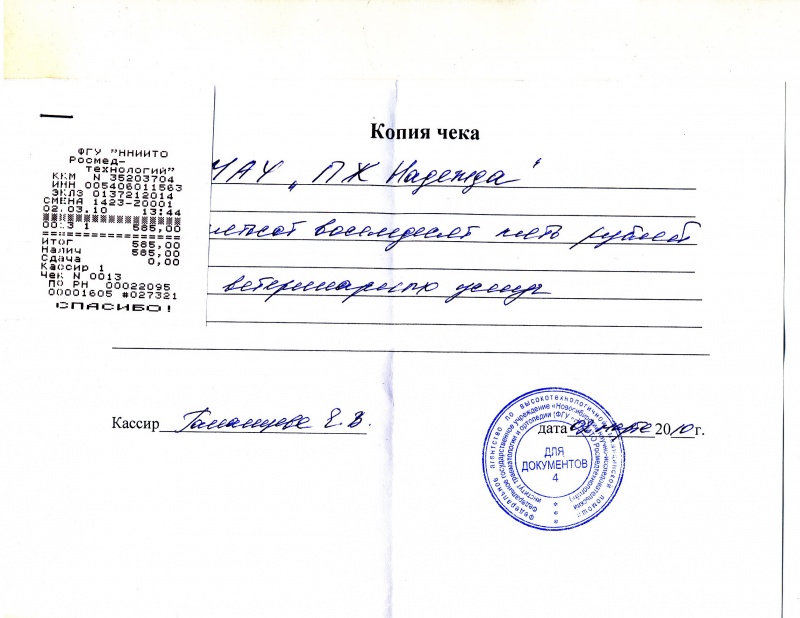 Копия чека
ФГУ "ННИИТО
Росмед-
технологий"
ККМ N 35203704
ИНН 005406011563
ЭКЛЗ 0137212014
СМЕНА 1423-20001
02.03.10 13:44
00:3 1 585,00
Итог 585,00
Налич 585,00
Сдача 0,00
Кассир 1
Чек N 0013
ПО РН 00022095
00001605 #027321
СПАСИБО!
"ПХ Надежда"
восемдесят пять рублей
ветеринарные услуги
Кассир Е.В.
дата 02 марта 2010г.
Федеральное агентство по высокотехнологичной медицинской помощи
Федеральное государственное учреждение «Новосибирский научно-исследовательский
институт травматологии и ортопедии (ФГУ Росмедтехнологий)
ДЛЯ
ДОКУМЕНТОВ
4